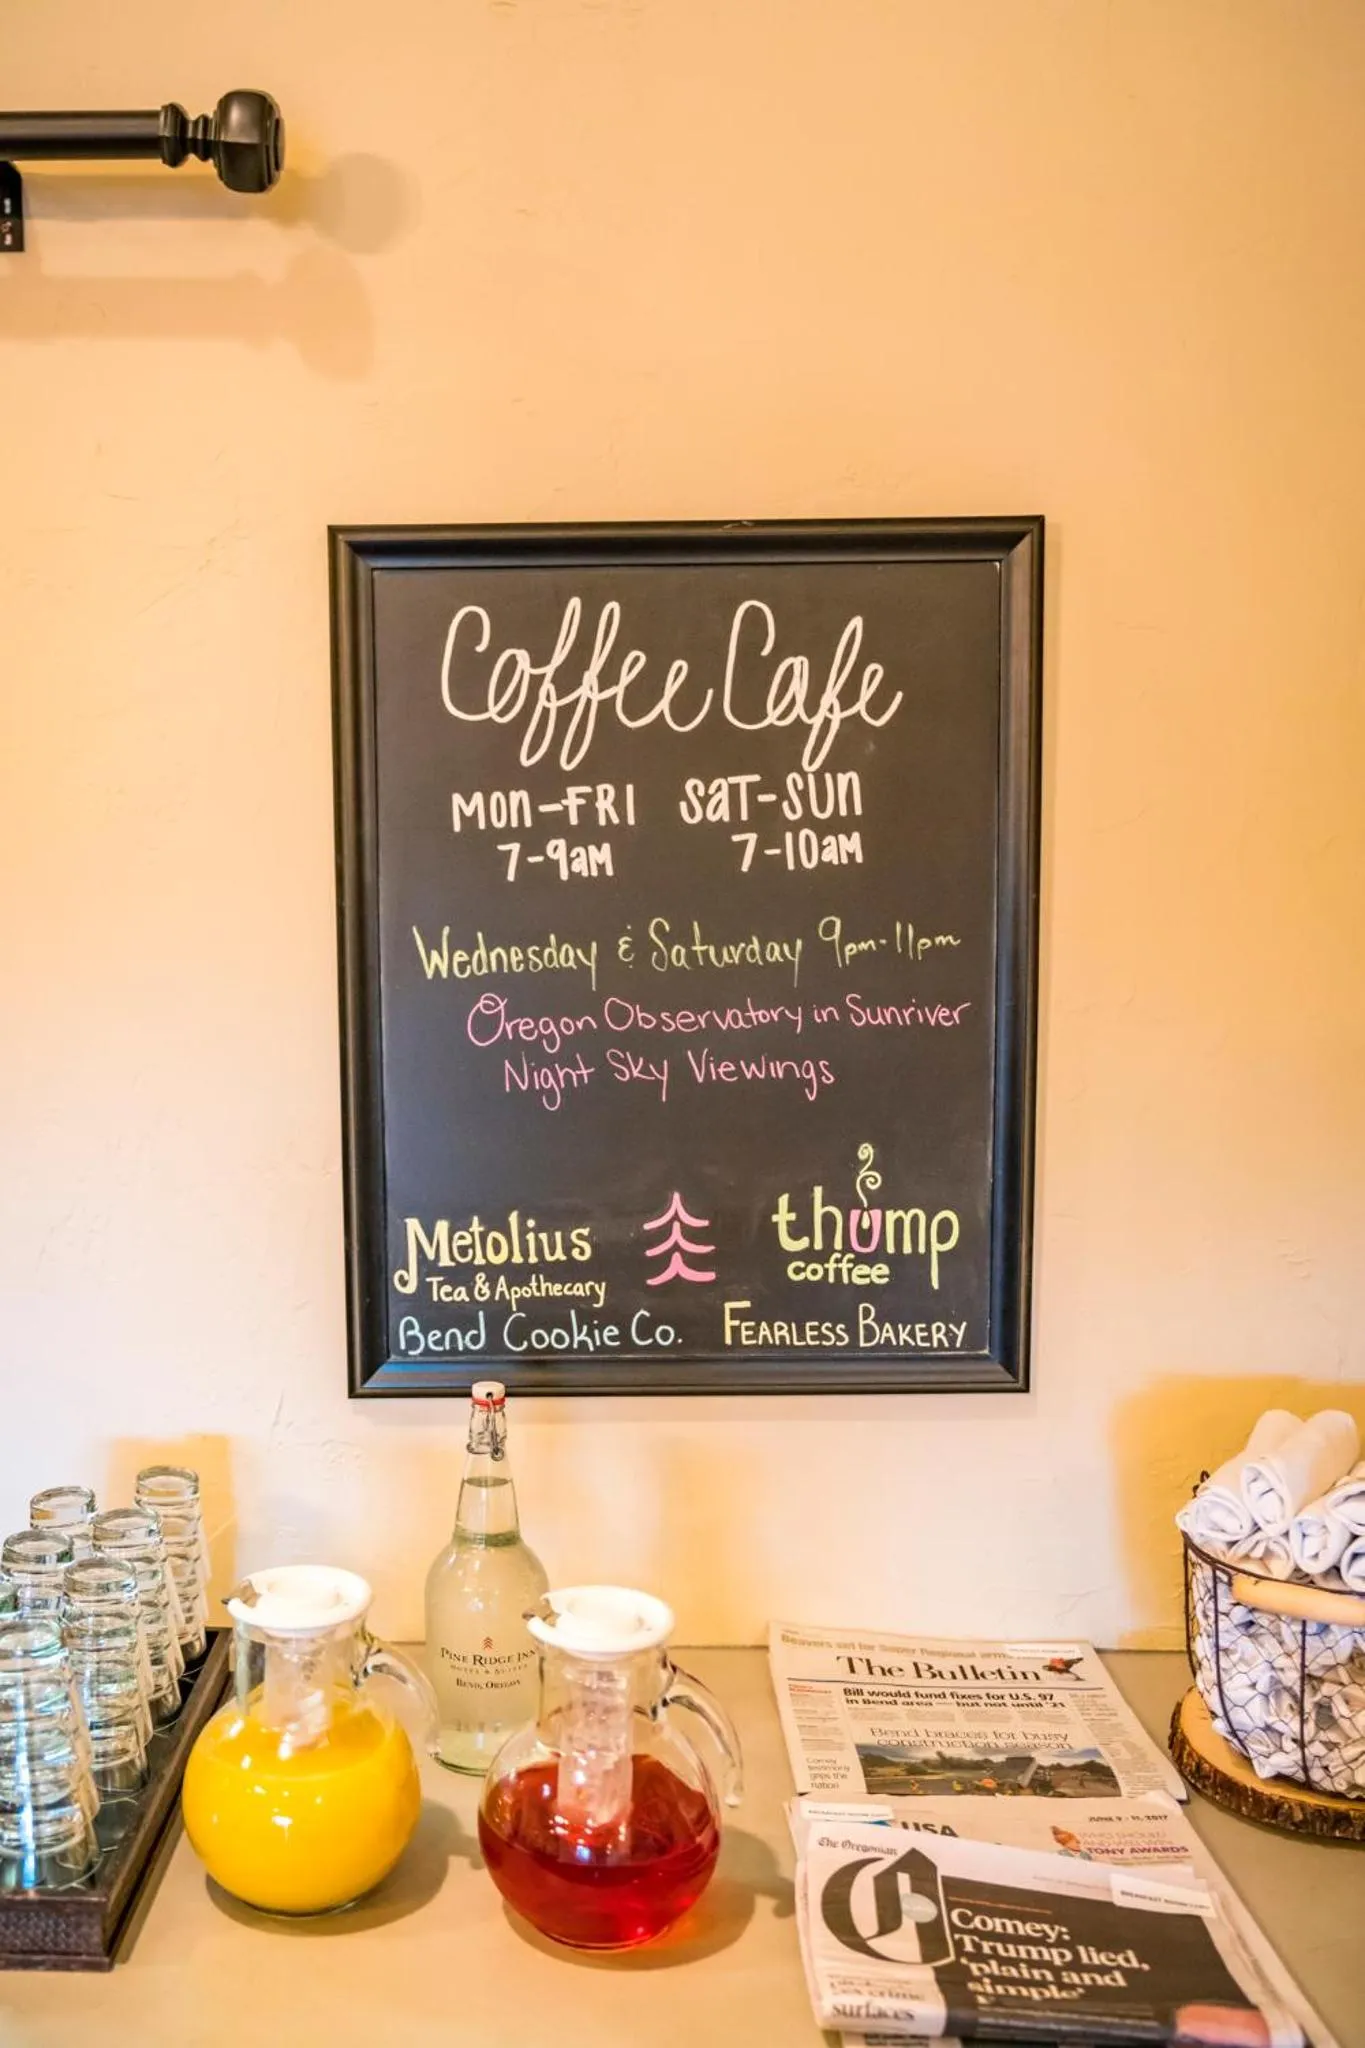 Coffee Cafe
MON-FRI SAT-SUN
7-9AM 7-10AM
Wednesday & Saturday 9pm-11pm
Oregon Observatory in Sunriver
Night Sky Viewings
Metolius
Tea & Apothecary
thump
coffee
Bend Cookie Co.
FEARLESS BAKERY
PINE RIDGE INN
HOTEL & SUITES
BEND, OREGON
Beavers set for Super Regional
The Bulletin
Bill would fund fixes for U.S. 97
in Bend area — but not until '21
Bend braces for busy
construction season
Comey
testimony
grips the
nation
USA
JUNE 9 - 11, 2017
WHO SHOULD
AND WILL WIN
TONY AWARDS
The Oregonian
BREAKFAST ROOM COPY
Comey:
Trump lied,
'plain and
simple'
surfaces